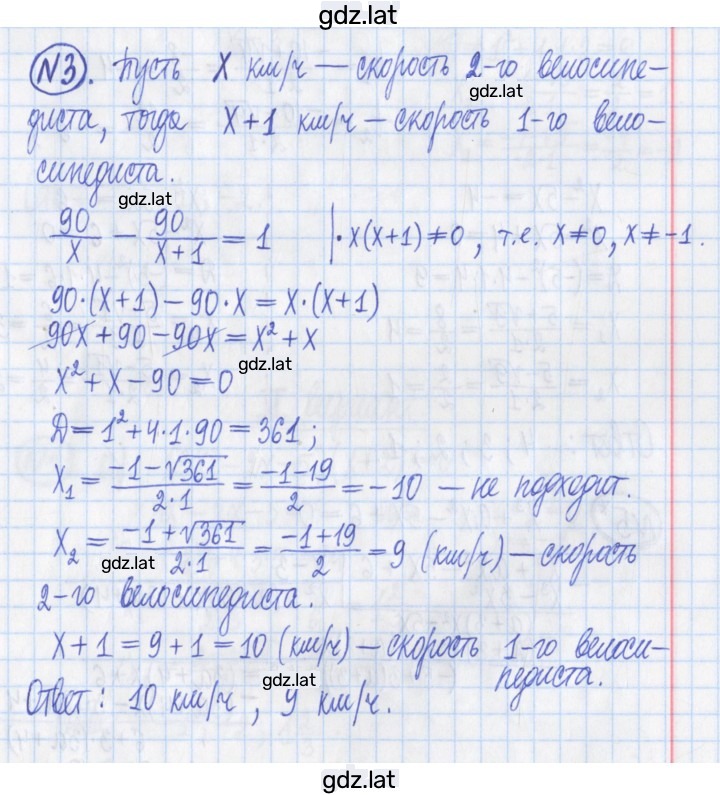 gdz.lat
№3. Пусть x км/ч — скорость 2-го велосипе-
gdz.lat
диста, тогда x+1 км/ч — скорость 1-го вело-
сипедиста.
gdz.lat
90/x − 90/(x+1) = 1 |·x(x+1)≠0, т.е. x≠0, x≠-1.
90·(x+1)−90·x=x·(x+1)
90x+90−90x=x²+x
gdz.lat
x²+x−90=0
Д=1²+4·1·90=361;
x₁ = (−1−√361)/(2·1) = (−1−19)/2 = −10 — не подходит.
x₂ = (−1+√361)/(2·1) = (−1+19)/2 = 9 (км/ч) — скорость
gdz.lat
2-го велосипедиста.
x+1=9+1=10 (км/ч) — скорость 1-го велоси-
педиста.
gdz.lat
Ответ: 10 км/ч, 9 км/ч.
gdz.lat